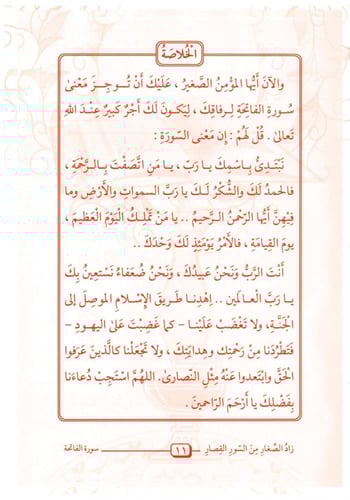 الْخُلاصَةُ
والآنَ أَيُّها المؤْمِنُ الصَّغيرُ ، عَلَيْكَ أَنْ تُـوجِـزَ مَعْنىٰ
سُورةِ الفاتحَةِ لِرِفاقِكَ ، لِيَكونَ لَكَ أَجْرٌ كَبيرٌ عِنْـدَ اللهِ
تَعالىٰ . قُلْ لَهُمْ : إِن مَعْنى السّورَةِ :
نَبْتَدِئُ بِاسْمِكَ يـا رَبّ ، يـا مَـنِ اتَّصَفْتَ بِـالـرَّحْمَةِ ،
فالحمدُ لَكَ والشُّكْرُ لَـكَ يا رَبَّ السمواتِ والأَرْضِ وما
فِيهِنَّ أَيُّها الرَّحْمٰنُ الرَّحيمُ .. يا مَنْ تَمْلِـكُ الْيَوْمَ العَظيمَ ،
يومَ القِيامَةِ ، فالأَمْرُ يَوْمَئِذٍ لَكَ وَحْدَكَ ..
أَنْتَ الرَّبُّ وَنَحْنُ عَبيدُكَ ، وَنَحْنُ ضُعَفاءُ نَسْتَعِينُ بِكَ
يـا رَبَّ الْعـالَمين .. اِهْدِنـا طَريقَ الإِسْلامِ الموصِلَ إلى
الجَنَّـةِ، ولا تَغْضَبْ عَلَيْنـا – كما غَضِبْتَ عَلىٰ اليهودِ –
فَتَطْرُدَنا مِنْ رَحْمَتِك وهِدايَتِكَ ، ولا تَجْعَلْنا كالَّذينَ عَرَفوا
الْحَقَّ وابْتَعدوا عَنْهُ مِثْلِ النّصارىٰ. اللهُمَّ اسْتَجِبْ دُعاءَنا
بِفَضْلِكَ يا أَرْحَمَ الرّاحِمينَ .
زادُ الصِّغارِ مِنَ السّورِ القِصارِ ١١ سورة الفاتحة